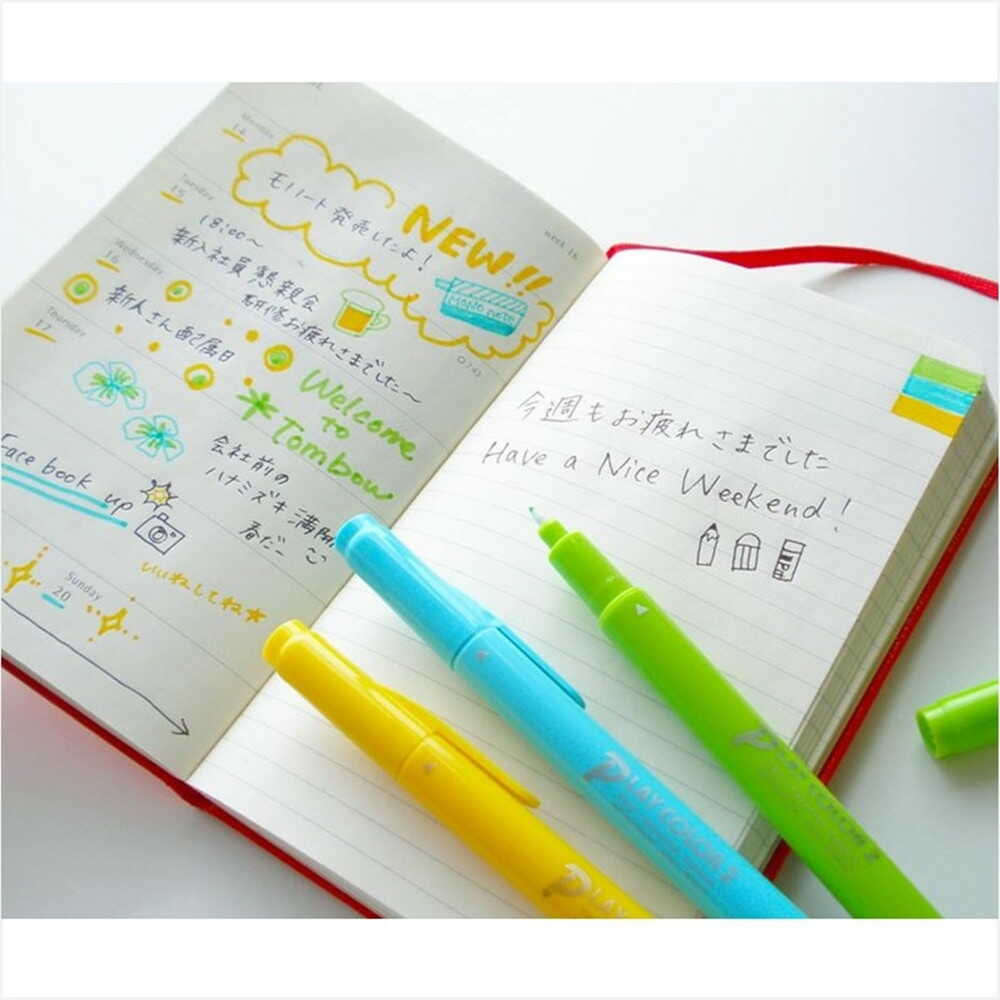 week 16
Monday
14
モノノート発売したよ!
NEW!!
MONO NOTE
Tuesday
15
18:00〜
新入社員懇親会
研修お疲れさまでした〜
Wednesday
16
新人さん配属日
Welcome
to
Tombow
Thursday
17
会社前の
ハナミズキ満開
春だー
Face book up
いいねしてね
Sunday
20
今週もお疲れさまでした
Have a Nice Weekend!
PLAY COLOR 2
PLAY COLOR 2
PLAY